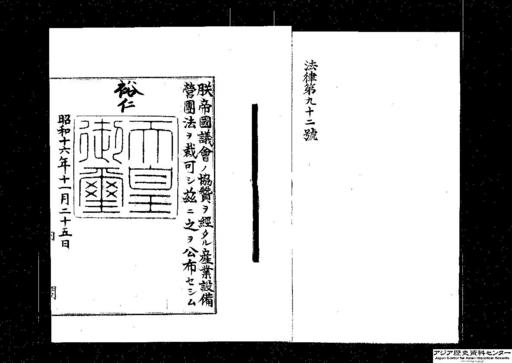 法律第九十二號
朕帝國議會ノ協贊ヲ經タル産業設備
營團法ヲ裁可シ茲ニ之ヲ公布セシム
裕仁
天皇御璽
昭和十六年十一月二十五日
アジア歴史資料センター
Japan Center for Asian Historical Records